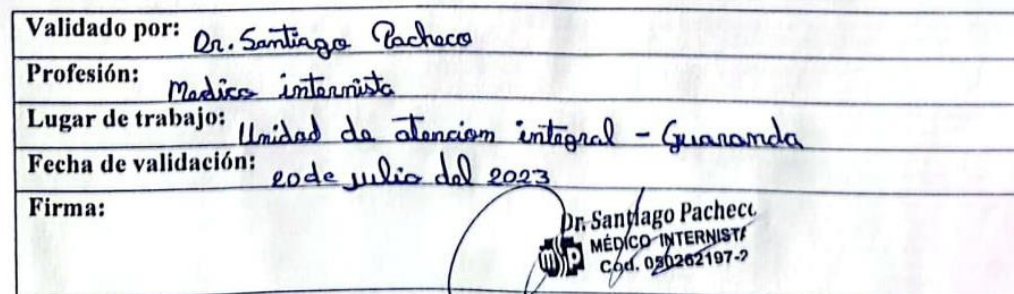 Validado por: Dr. Santiago Pacheco
Profesión: Medico internista
Lugar de trabajo: Unidad de atencion integral - Guaranda
Fecha de validación: 20 de julio del 2023
Firma:
Dr. Santiago Pacheco
MÉDICO INTERNISTA
msp Cód. 020262197-2